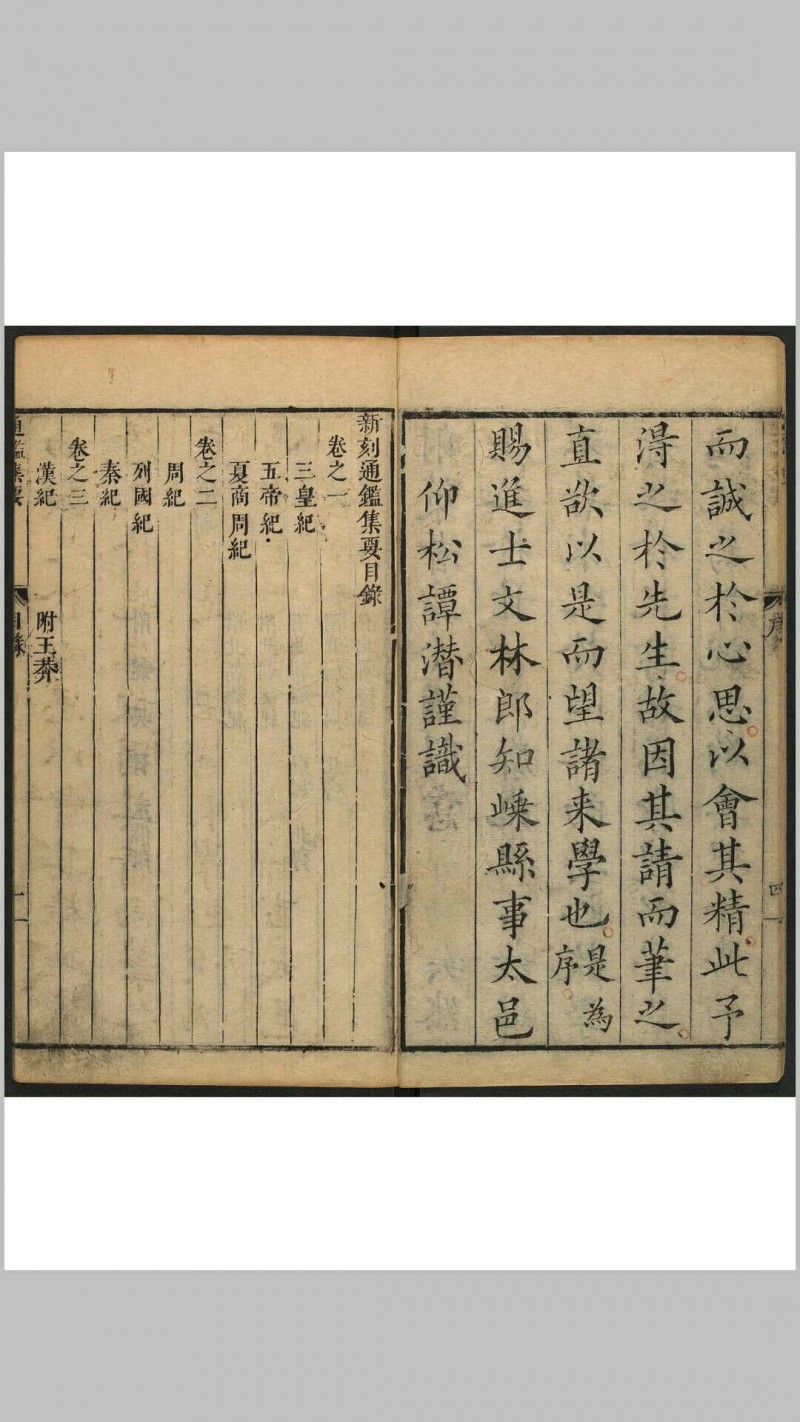 而誠之於心思以會其精此予
淂之於先生故因其請而筆之
直欲以是而望諸来學也是為序
賜進士文林郎知嵊縣事太邑
仰松譚潛謹識
序
四
新刻通鑑集要目錄
卷之一
三皇紀
五帝紀
夏商周紀
卷之二
周紀
列國紀
秦紀
卷之三
漢紀 附王莽
通鑑集要
目錄
一